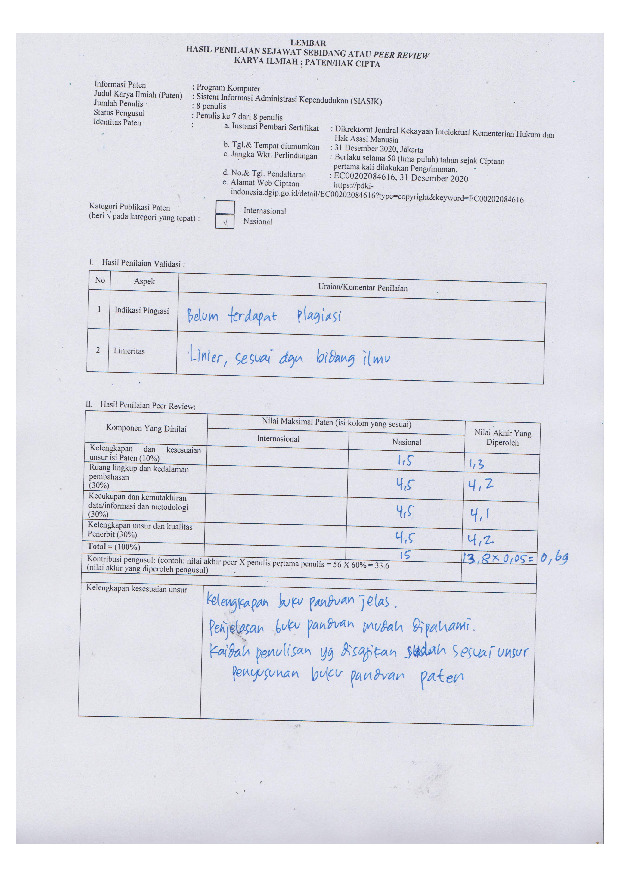 LEMBAR
HASIL PENILAIAN SEJAWAT SEBIDANG ATAU PEER REVIEW
KARYA ILMIAH : PATEN/HAK CIPTA
Informasi Paten : Program Komputer
Judul Karya Ilmiah (Paten) : Sistem Informasi Administrasi Kependudukan (SIASIK)
Jumlah Penulis : 8 penulis
Status Pengusul : Penulis ke 7 dari 8 penulis
Identitas Paten : a. Instansi Pemberi Sertifikat : Direktorat Jendral Kekayaan Intelektual Kementerian Hukum dan
Hak Asasi Manusia
b. Tgl.& Tempat diumumkan : 31 Desember 2020, Jakarta
c. Jangka Wkt. Perlindungan : Berlaku selama 50 (lima puluh) tahun sejak Ciptaan
pertama kali dilakukan Pengumuman.
d. No.& Tgl. Pendaftaran : EC00202084616, 31 Desember 2020
e. Alamat Web Ciptaan https://pdki-
indonesia.dgip.go.id/detail/EC00202084616?type=copyright&keyword=EC00202084616
Kategori Publikasi Paten Internasional
(beri √ pada kategori yang tepat) : √ Nasional
I. Hasil Penilaian Validasi :
No Aspek Uraian/Komentar Penilaian
1 Indikasi Plagiasi Belum terdapat plagiasi
2 Linieritas Linier, sesuai dgn bidang ilmu
II. Hasil Penilaian Peer Review:
Komponen Yang Dinilai Nilai Maksimal Paten (isi kolom yang sesuai) Nilai Akhir Yang
Diperoleh
Internasional Nasional
Kelengkapan dan kesesuaian
unsur isi Paten (10%) 1,5 1,3
Ruang lingkup dan kedalaman
pembahasan
(30%) 4,5 4,2
Kecukupan dan kemutakhiran
data/informasi dan metodologi
(30%) 4,5 4,1
Kelengkapan unsur dan kualitas
Penerbit (30%) 4,5 4,2
Total = (100%) 15 13,8 x 0,05 = 0,69
Kontribusi pengusul: (contoh: nilai akhir peer X penulis pertama penulis = 56 X 60% = 33.6
(nilai akhir yang diperoleh pengusul)
Kelengkapan kesesuaian unsur Kelengkapan buku panduan jelas.
Penjelasan buku panduan mudah dipahami.
Kaidah penulisan yg disajikan sudah sesuai unsur
penyusunan buku panduan paten